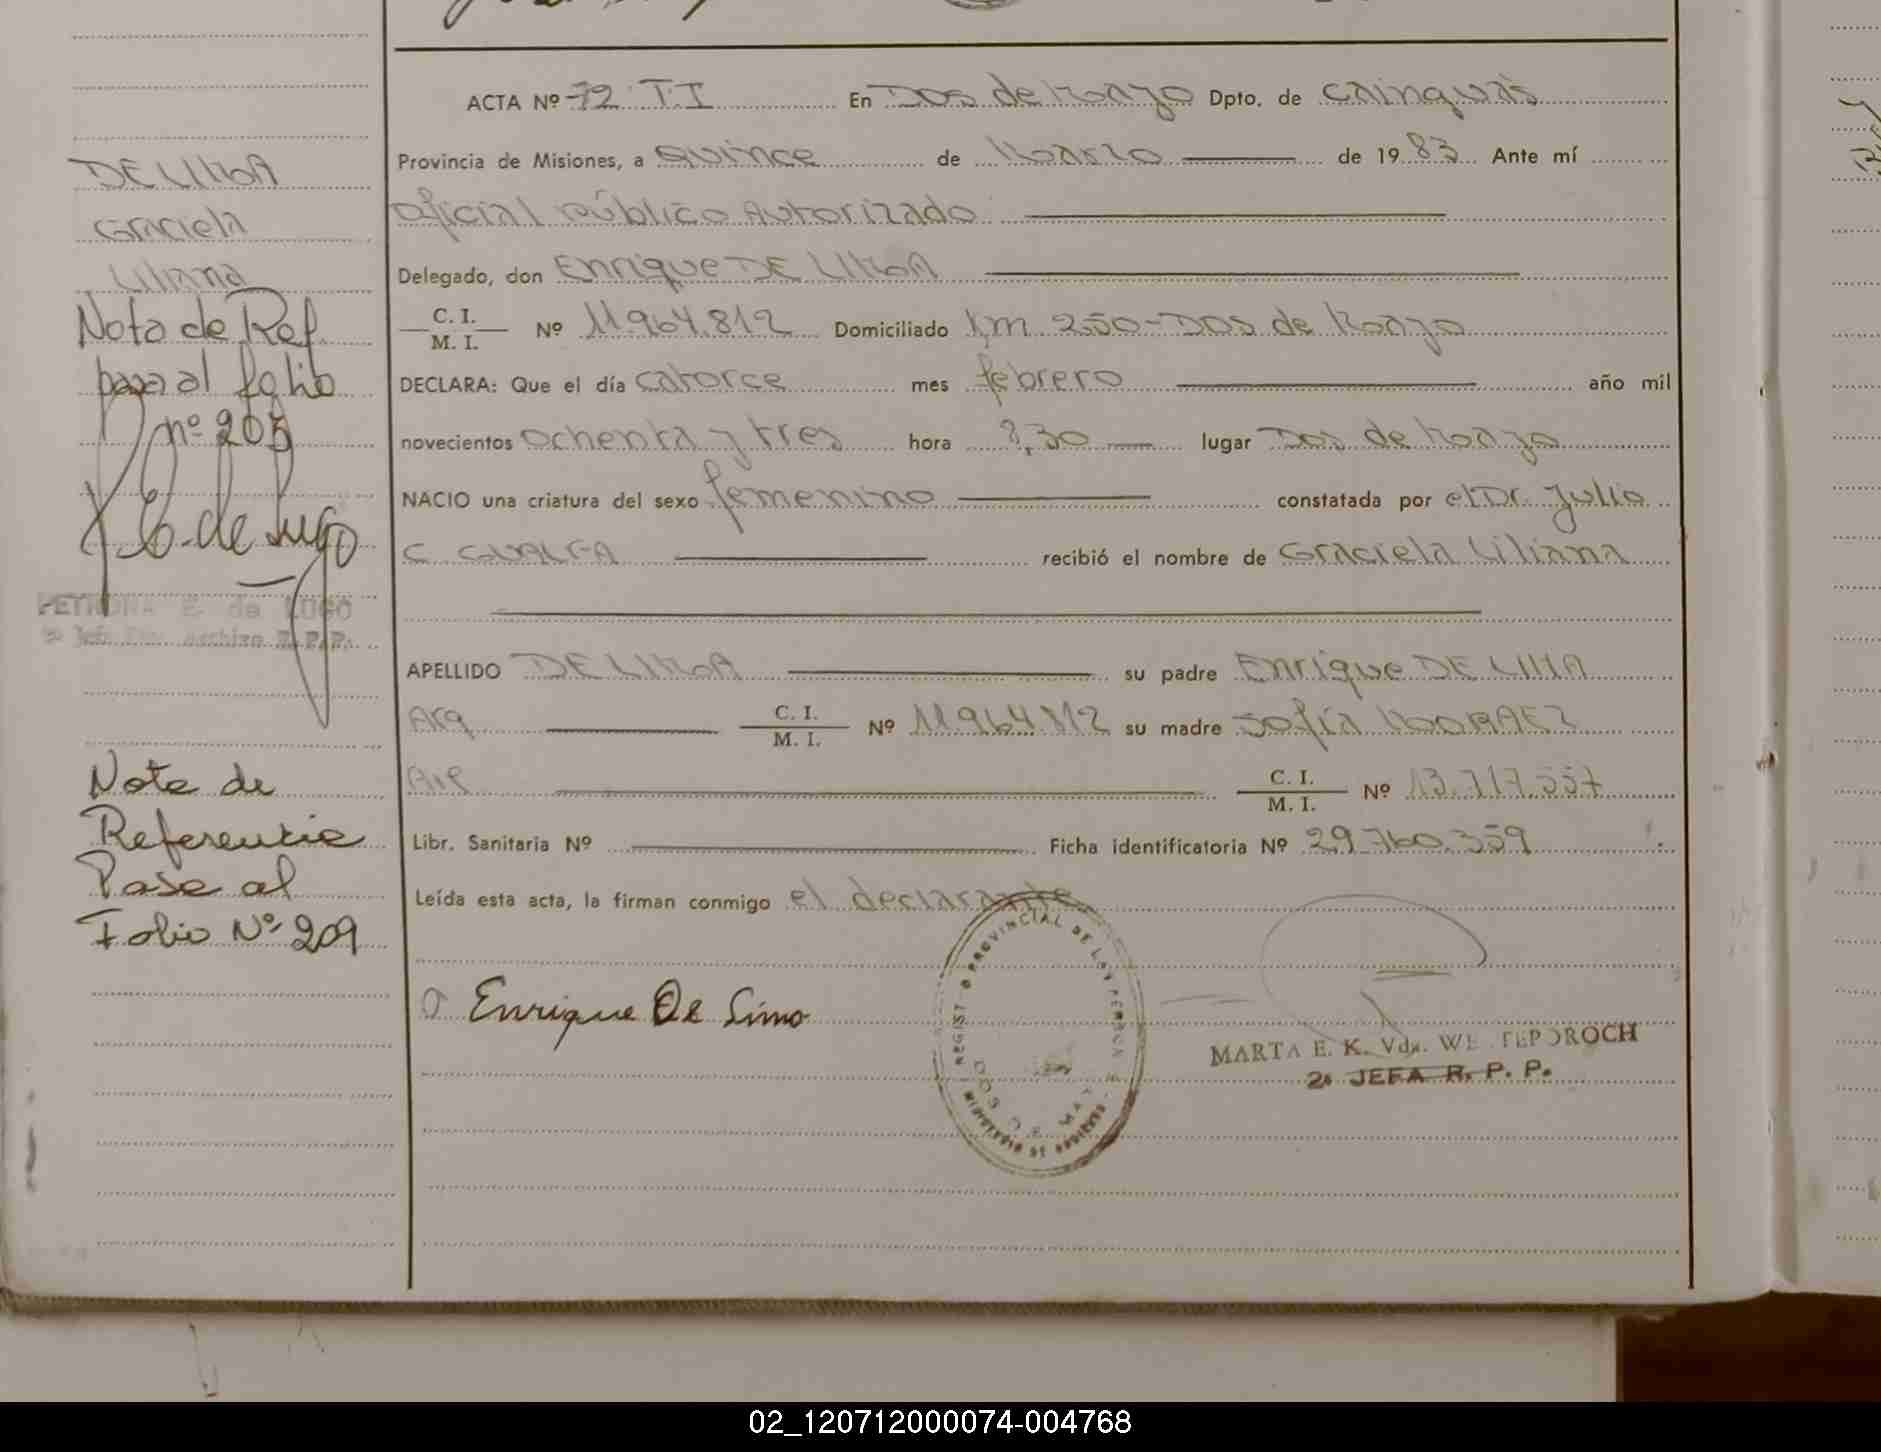 ACTA Nº 72 T.I En Dos de Mayo Dpto. de Cainguás
Provincia de Misiones, a Quince de Marzo de 1983 Ante mí
Oficial Público Autorizado
Delegado, don Enrique DE LIMA
C. I.
M. I. Nº 11.964.812 Domiciliado Km 250-Dos de Mayo
DECLARA: Que el día catorce mes febrero año mil
novecientos ochenta y tres hora 8,30 lugar Dos de Mayo
NACIO una criatura del sexo femenino constatada por el Dr. Julio
C. recibió el nombre de Graciela Liliana
APELLIDO DE LIMA su padre Enrique DE LIMA
Arg C. I.
M. I. Nº 11.964.812 su madre Sofía
C. I.
M. I. Nº 13.717.557
Libr. Sanitaria Nº Ficha identificatoria Nº 29.760.359
Leída esta acta, la firman conmigo el declarante
Enrique De Lima
REGISTRO PROVINCIAL DE LAS PERSONAS
MINISTERIO DE GOBIERNO
DOS DE MAYO
MARTA E. K. Vda.
2ª JEFA R. P. P.
DE LIMA
Graciela
Liliana
Nota de Ref.
pasa al folio
nº 205
P. E. de Lugo
PETRONA E. de LUGO
Archivo R.P.P.
Nota de
Referencia
Pase al
Folio Nº 209
02_120712000074-004768